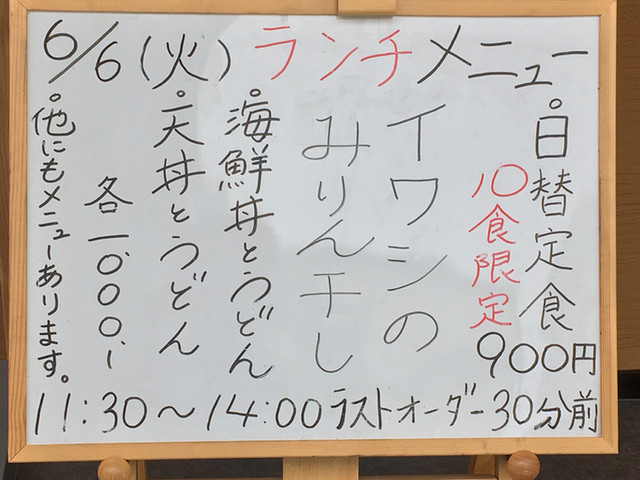 6/6(火)ランチメニュー
。日替定食
10食限定
900円
イワシの
みりん干し
。海鮮丼とうどん
。天丼とうどん
各一〇〇〇、ー
。他にもメニューあります。
11:30〜14:00ラストオーダー30分前